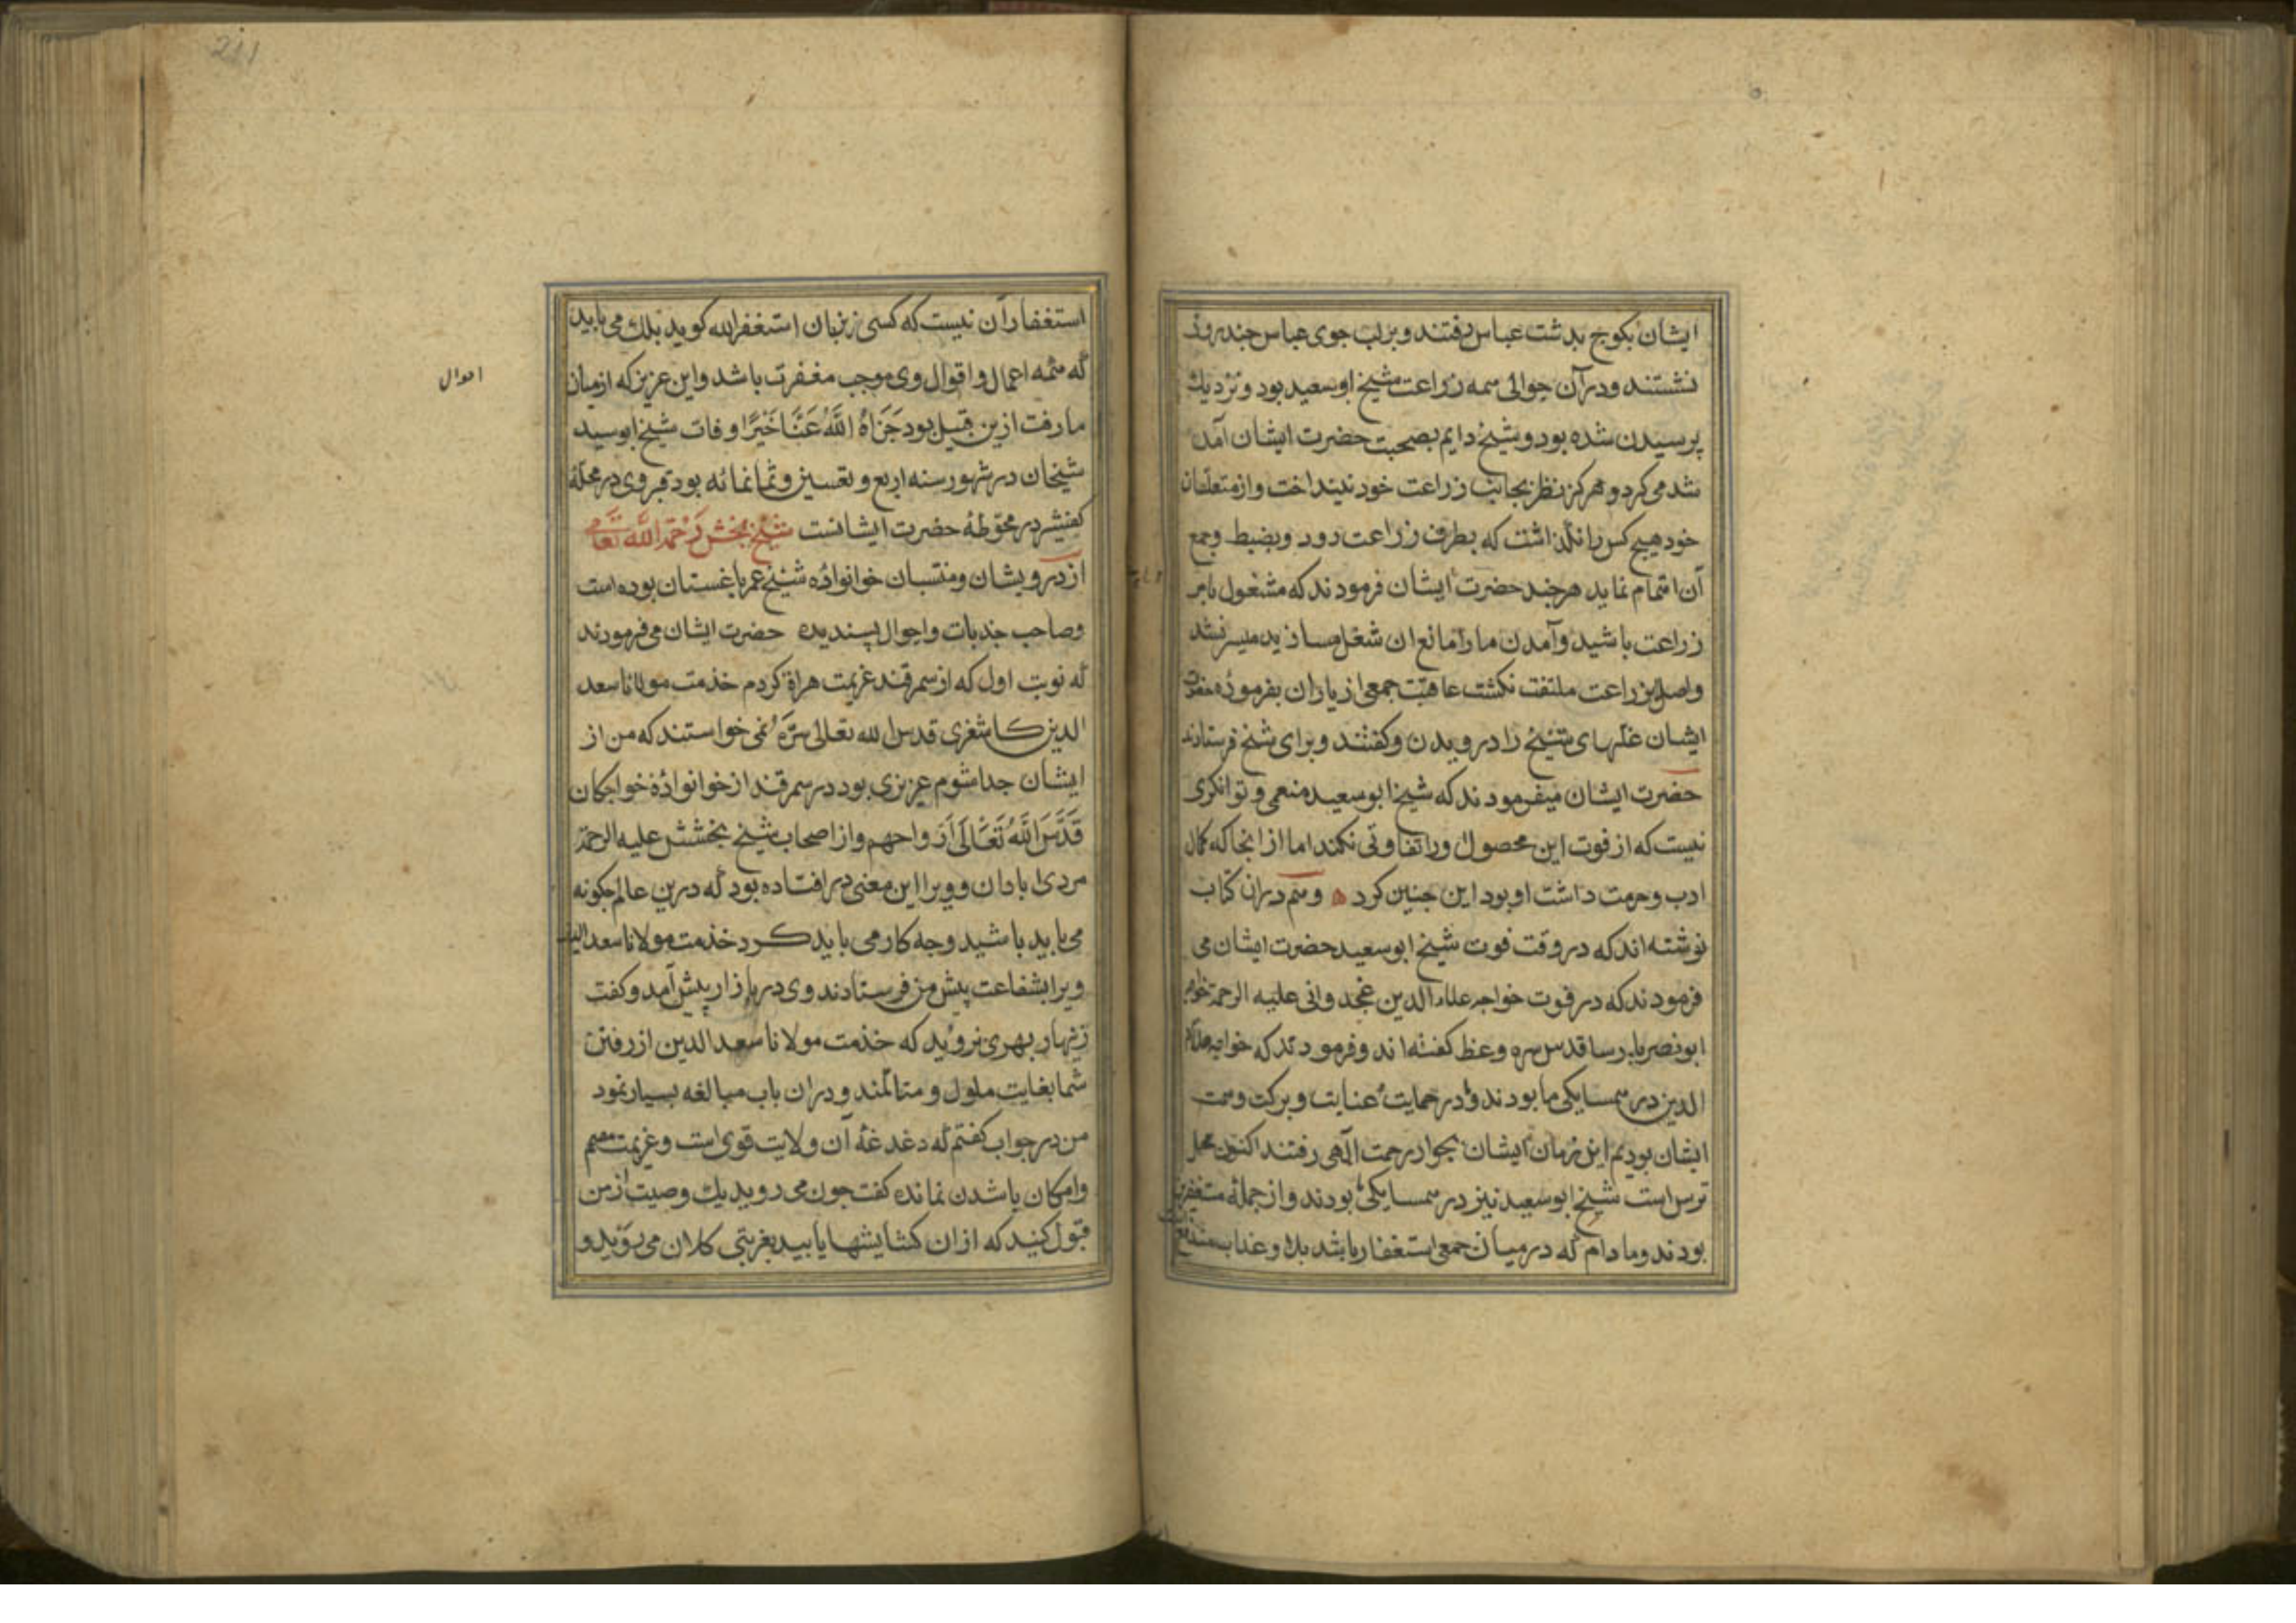 ایشان بکوچ بدشت عباس رفتند و بر لب جوی عباس چند روز
نشستند و در آن حوالی همه زراعت شیخ ابوسعید بود و نزدیك
برسیدن شده بود و شیخ دایم بصحبت حضرت ایشان آمد
شد می کرد و هرکز نظر بجانب زراعت خود نینداخت و از متعلقان
خود هیچ کس را نکذاشت که بطرف زراعت رود و بضبط و جمع
آن اهتمام نماید هرچند حضرت ایشان فرمودند که مشغول بامر
زراعت باشید و آمدن ما را مانع ان شغل مسازید میسر نشد
و اصلا بزراعت ملتفت نکشت عاقبت جمعی از یاران بفرمودهٔ حضرت
ایشان غلهای شیخ را درویدن و کفتند و برای شیخ فرستادند
حضرت ایشان میفرمودند که شیخ ابوسعید منعمی و توانکری
نیست که از فوت این محصول ورا تفاوتی نکند اما از انجا که کمال
ادب و حرمت داشت او بود این چنین کرد ه و هم دران کتاب
نوشته اند که در وقت فوت شیخ ابوسعید حضرت ایشان می
فرمودند که در فوت خواجه علاء الدین غجدوانی علیه الرحمة خواجه
ابونصر پارسا قدس سره وعظ کفته اند و فرمودند که خواجه علاء
الدین در همسایکی ما بودند و در حمایت عنایت و برکت و همت
ایشان بودیم این زمان ایشان بجوار رحمت آلهی رفتند اکنون محل
ترس است شیخ ابوسعید نیز در همسایکی ما بودند و از جمله مستغفرین
بودند و مادام که در میان جمعی استغفار باشد بلا و عذاب مندفع
استغفار آن نیست که کسی بزبان استغفرالله کوید بلك می باید
که همه اعمال و اقوال وی موجب مغفرت باشد و این عزیز که از میان
احوال
ما رفت ازین قبیل بود جَزَاهُ اللَّهُ عَنَّا خَیْرًا وفات شیخ ابوسید
شیخان در شهور سنه اربع و تسعین و ثمانمائه بود قبر وی در محلهٔ
کفشیر در محوطهٔ حضرت ایشانست شیخ بخش رَحْمَةُ اللَّه تَعَالی
از درویشان و منتسبان خوانوادهٔ شیخ عمر باغستان بوده است
و صاحب جذبات و احوال پسندیده حضرت ایشان می فرمودند
که نوبت اول که از سمرقند عزیمت هراة کردم خدمت مولانا سعد
الدین کاشغری قدس الله تعالی سرّه نمی خواستند که من از
ایشان جدا شوم عزیزی بود در سمرقند از خوانوادهٔ خواجکان
قَدَّسَ اللَّهُ تَعَالَی اَرْواحهم و از اصحاب شیخ بخشش علیه الرحمة
مردی ابادان و ویرا این معنی در افتاده بود که درین عالم چکونه
می باید باشید و چه کار می باید کرد خدمت مولانا سعد الدین
ویرا بشفاعت پیش من فرستادند وی در بازار پیش آمد و کفت
زنهار بهری نروید که خدمت مولانا سعد الدین از رفتن
شما بغایت ملول و متالمند و دران باب مبالغه بسیار نمود
من در جواب کفتم که دغدغهٔ آن ولایت قوی است و عزیمت مصمم
و امکان باشدن نمانده کفت چون می روید یك وصیت از من
قبول کنید که ازان کشایشها یابید بغربتی کلان می روید و